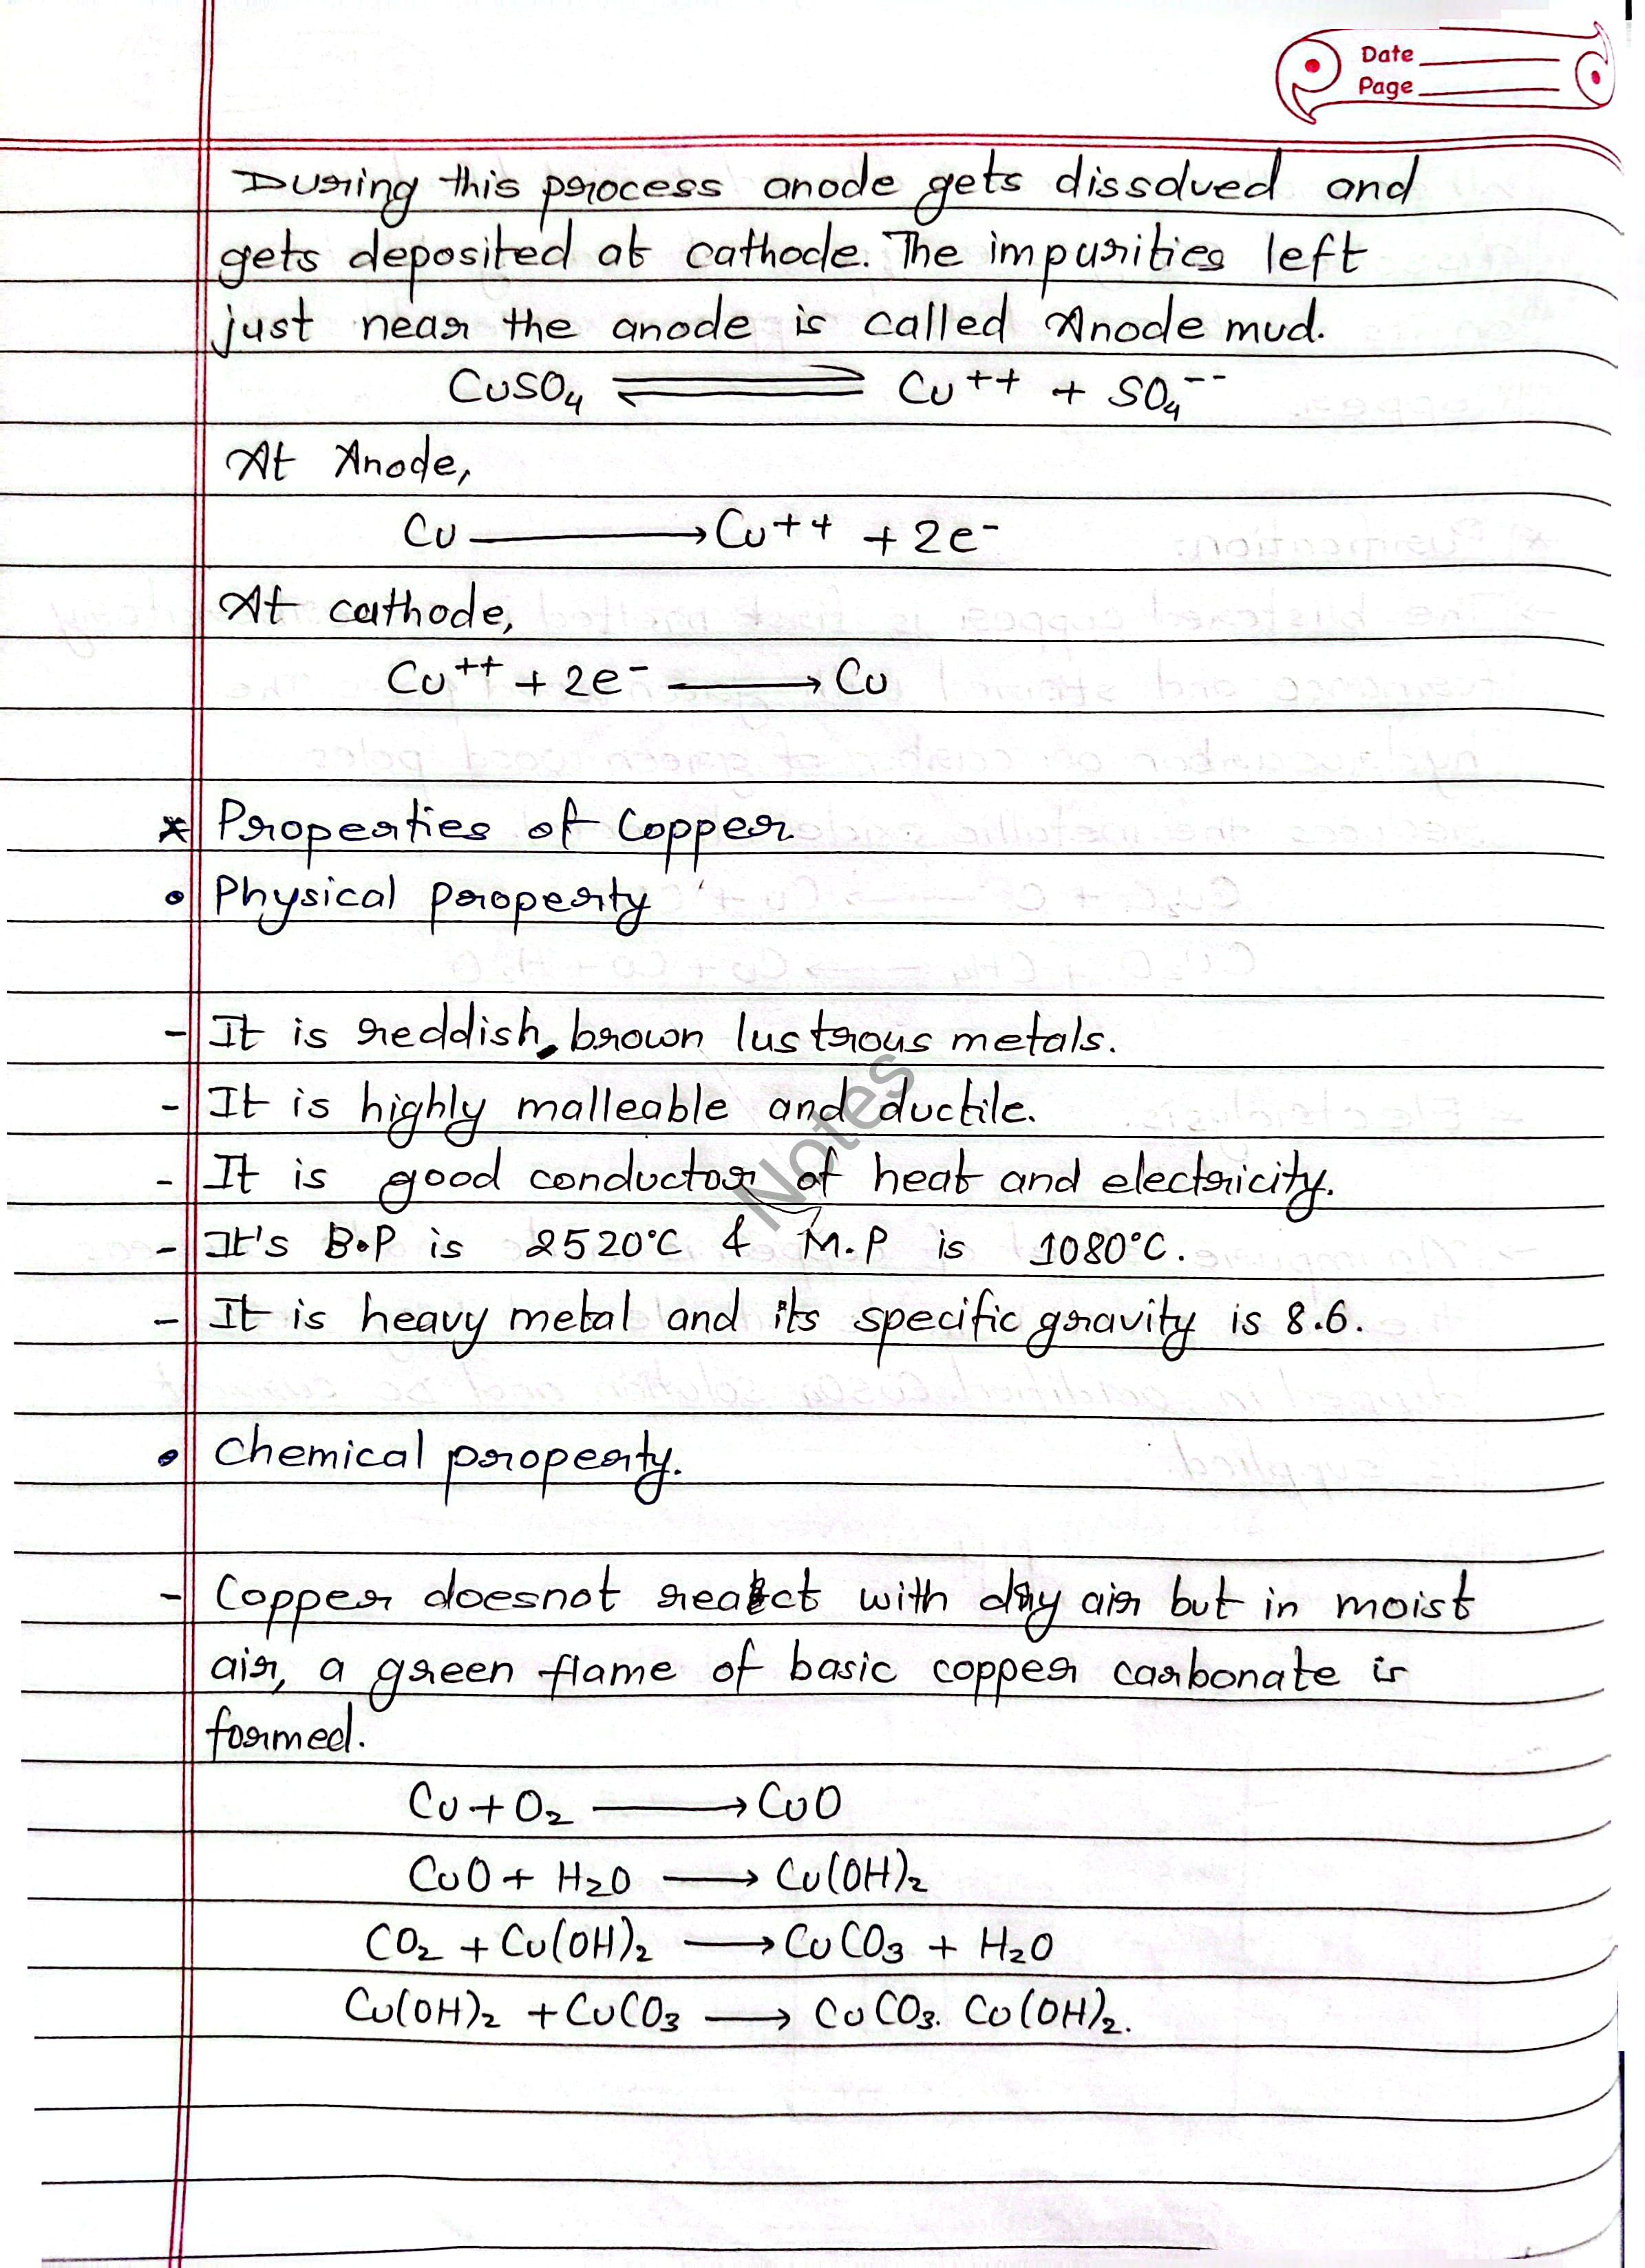 Date
Page
During this process anode gets dissolved and
gets deposited at cathode. The impurities left
just near the anode is called Anode mud.
CuSO₄ ⇌ Cu⁺⁺ + SO₄⁻⁻
At Anode,
Cu → Cu⁺⁺ + 2e⁻
At cathode,
Cu⁺⁺ + 2e⁻ → Cu
* Properties of Copper
• Physical property
- It is reddish, brown lustrous metals.
- It is highly malleable and ductile.
- It is good conductor of heat and electricity.
- It's B.P is 2520°C & M.P is 1080°C.
- It is heavy metal and its specific gravity is 8.6.
Notes
• Chemical property.
- Copper doesnot react with dry air but in moist
air, a green flame of basic copper carbonate is
formed.
Cu + O₂ → CuO
CuO + H₂O → Cu(OH)₂
CO₂ + Cu(OH)₂ → CuCO₃ + H₂O
Cu(OH)₂ + CuCO₃ → CuCO₃. Cu(OH)₂.